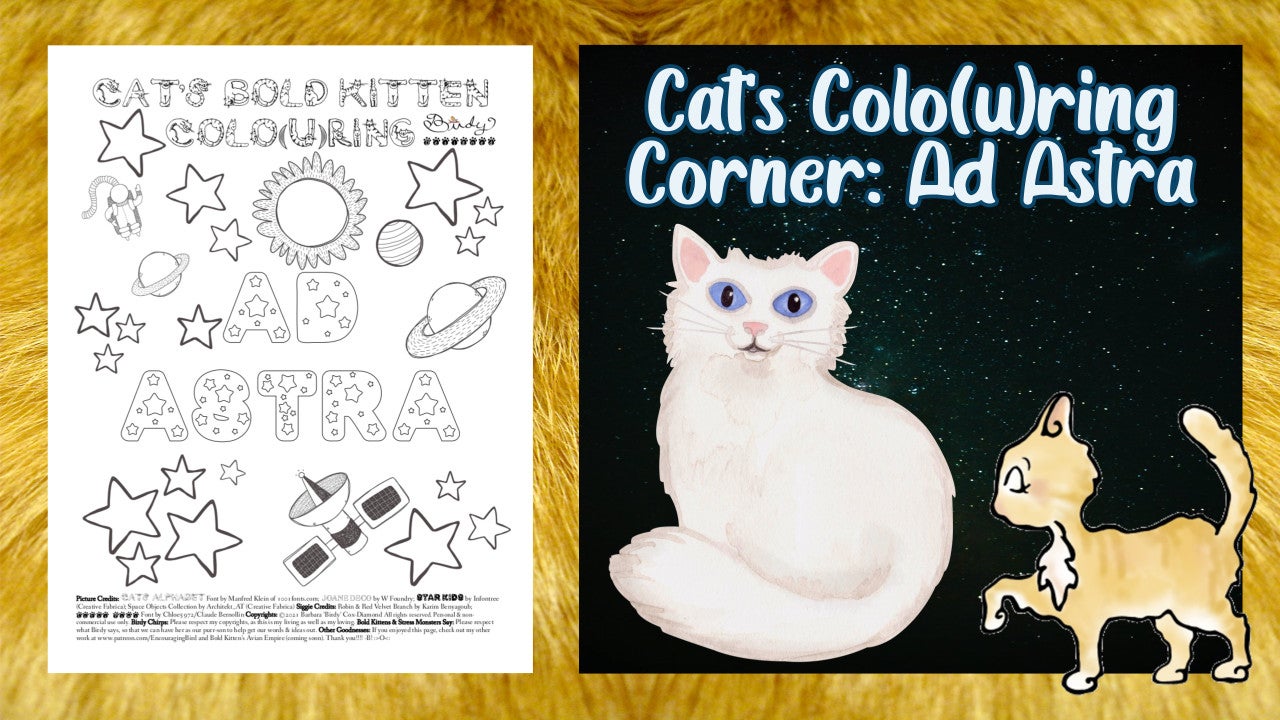 CAT'S BOLD KITTEN
COLO(U)RING Birdy
AD
ASTRA
Picture Credits: CATS ALPHABET Font by Manfred Klein of 1001fonts.com; JOANE DECO by W Foundry; STAR KIDS by Infontree
(Creative Fabrica); Space Objects Collection by Architekt_AT (Creative Fabrica) Siggie Credits: Robin & Red Velvet Branch by Karim Benyagoub;
Font by Chloe5972/Claude Bernollin Copyrights: ©2021 Barbara 'Birdy' Cox Diamond All rights reserved. Personal & non
commercial use only. Birdy Chirps: Please respect my copyrights, as this is my living as well as my loving. Bold Kittens & Stress Monsters Say: Please respect
what Birdy says, so that we can have her as our purr-son to help get our words & ideas out. Other Goodnesses: If you enjoyed this page, check out my other
work at www.patreon.com/EncouragingBird and Bold Kitten's Avian Empire (coming soon). Thank you!!!!
Cat's Colo(u)ring
Corner: Ad Astra